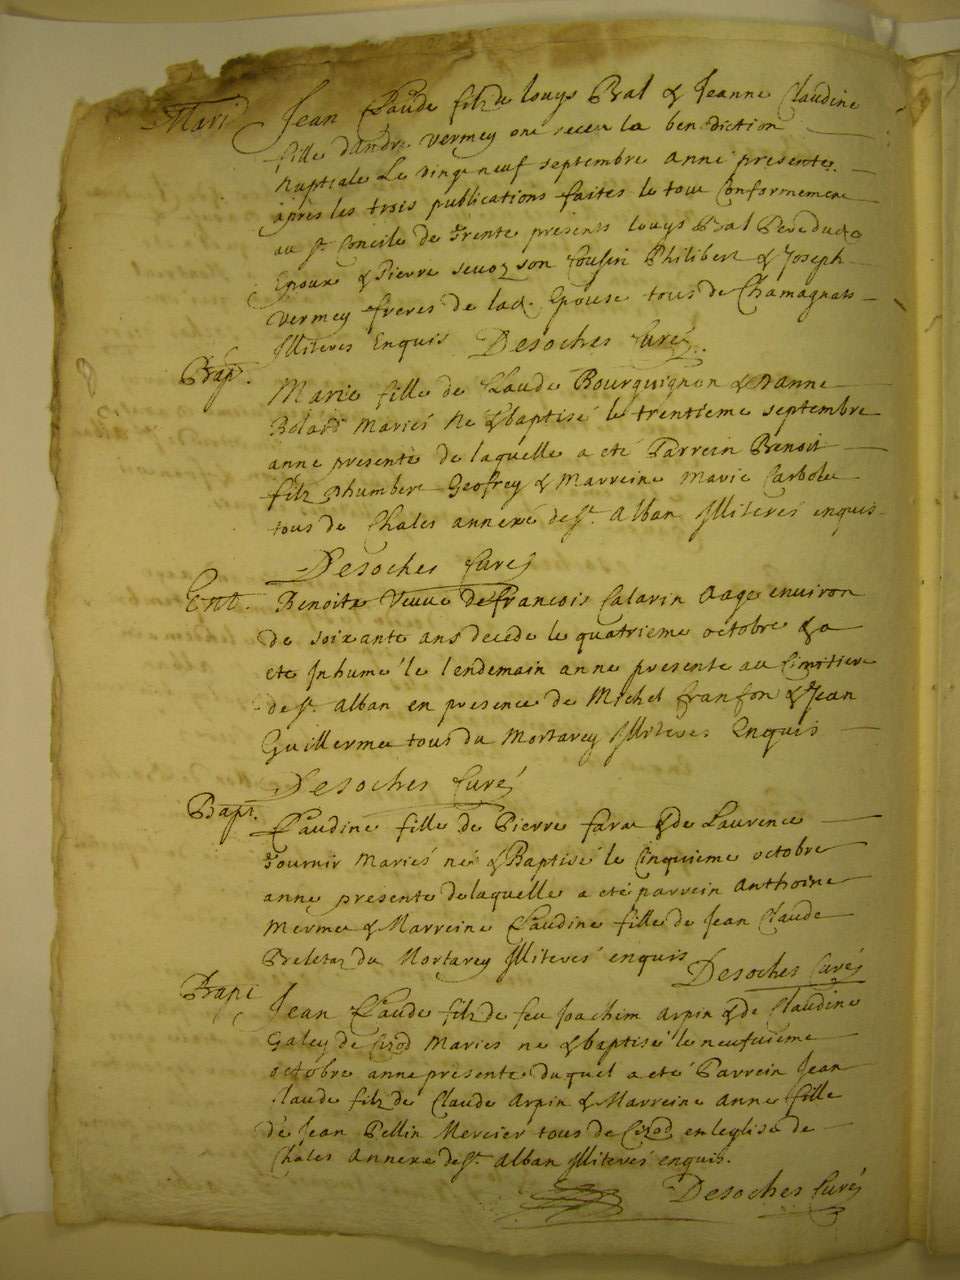 Mari Jean Claude filz de louys Bal & Jeanne Claudine
fille dandre vermey ont receu la benediction
Nuptiale Le vingt neuf septembre anne presente
apres les trois publications faites le tout Conformement
au st Concile de Trente presents louys Bal Pere dudt
Epoux & Pierre sevoz son Cousin Philibert & Joseph
vermey freres de lad. Epouse tous de Chamagnas
Illiteres Enquis Desoches Curé
Bapt. Marie fille de Claude Bourguignon & danne
Bolard Mariés Ne & baptisé le trentieme septembre
anne presente de laquelle a eté Parrein Benoit
filz dhumbert Geofrey & Marreine Marie Carbolet
tous de Chales annexe de st. Alban Illiterés enquis
Desoches Curé
Ent. Benoite Veuve de francois Calarin Aage environ
de soixante ans decede le quatrieme octobre & a
ete Inhume le lendemain anne presente au Cimitiere
de st. Alban en presence de Michel franson & Jean
Guillermet tous du Mortarey Illiteres Enquis
Desoches Curé
Bapt. Claudine fille de Pierre farat & de Laurence
Tournir Mariés né & Baptisé le Cinquieme octobre
anne presente de laquelle a eté parrein Anthoine
Merme & Marreine Claudine fille de Jean Claude
Beletaz du Mortarey Illiterés enquis Desoches Curé
Bapt Jean Claude filz de feu Joachim Arpin & de Claudine
Galey de Cizod Mariés ne & baptisé le neufvieme
octobre anne presente duquel a eté Parrein Jean
Claude filz de Claude Arpin & Marreine Anne fille
de Jean Pellin Mercier tous de Cizod en leglise de
Chales Annexe de st. Alban Illiterés enquis.
Desoches Curé